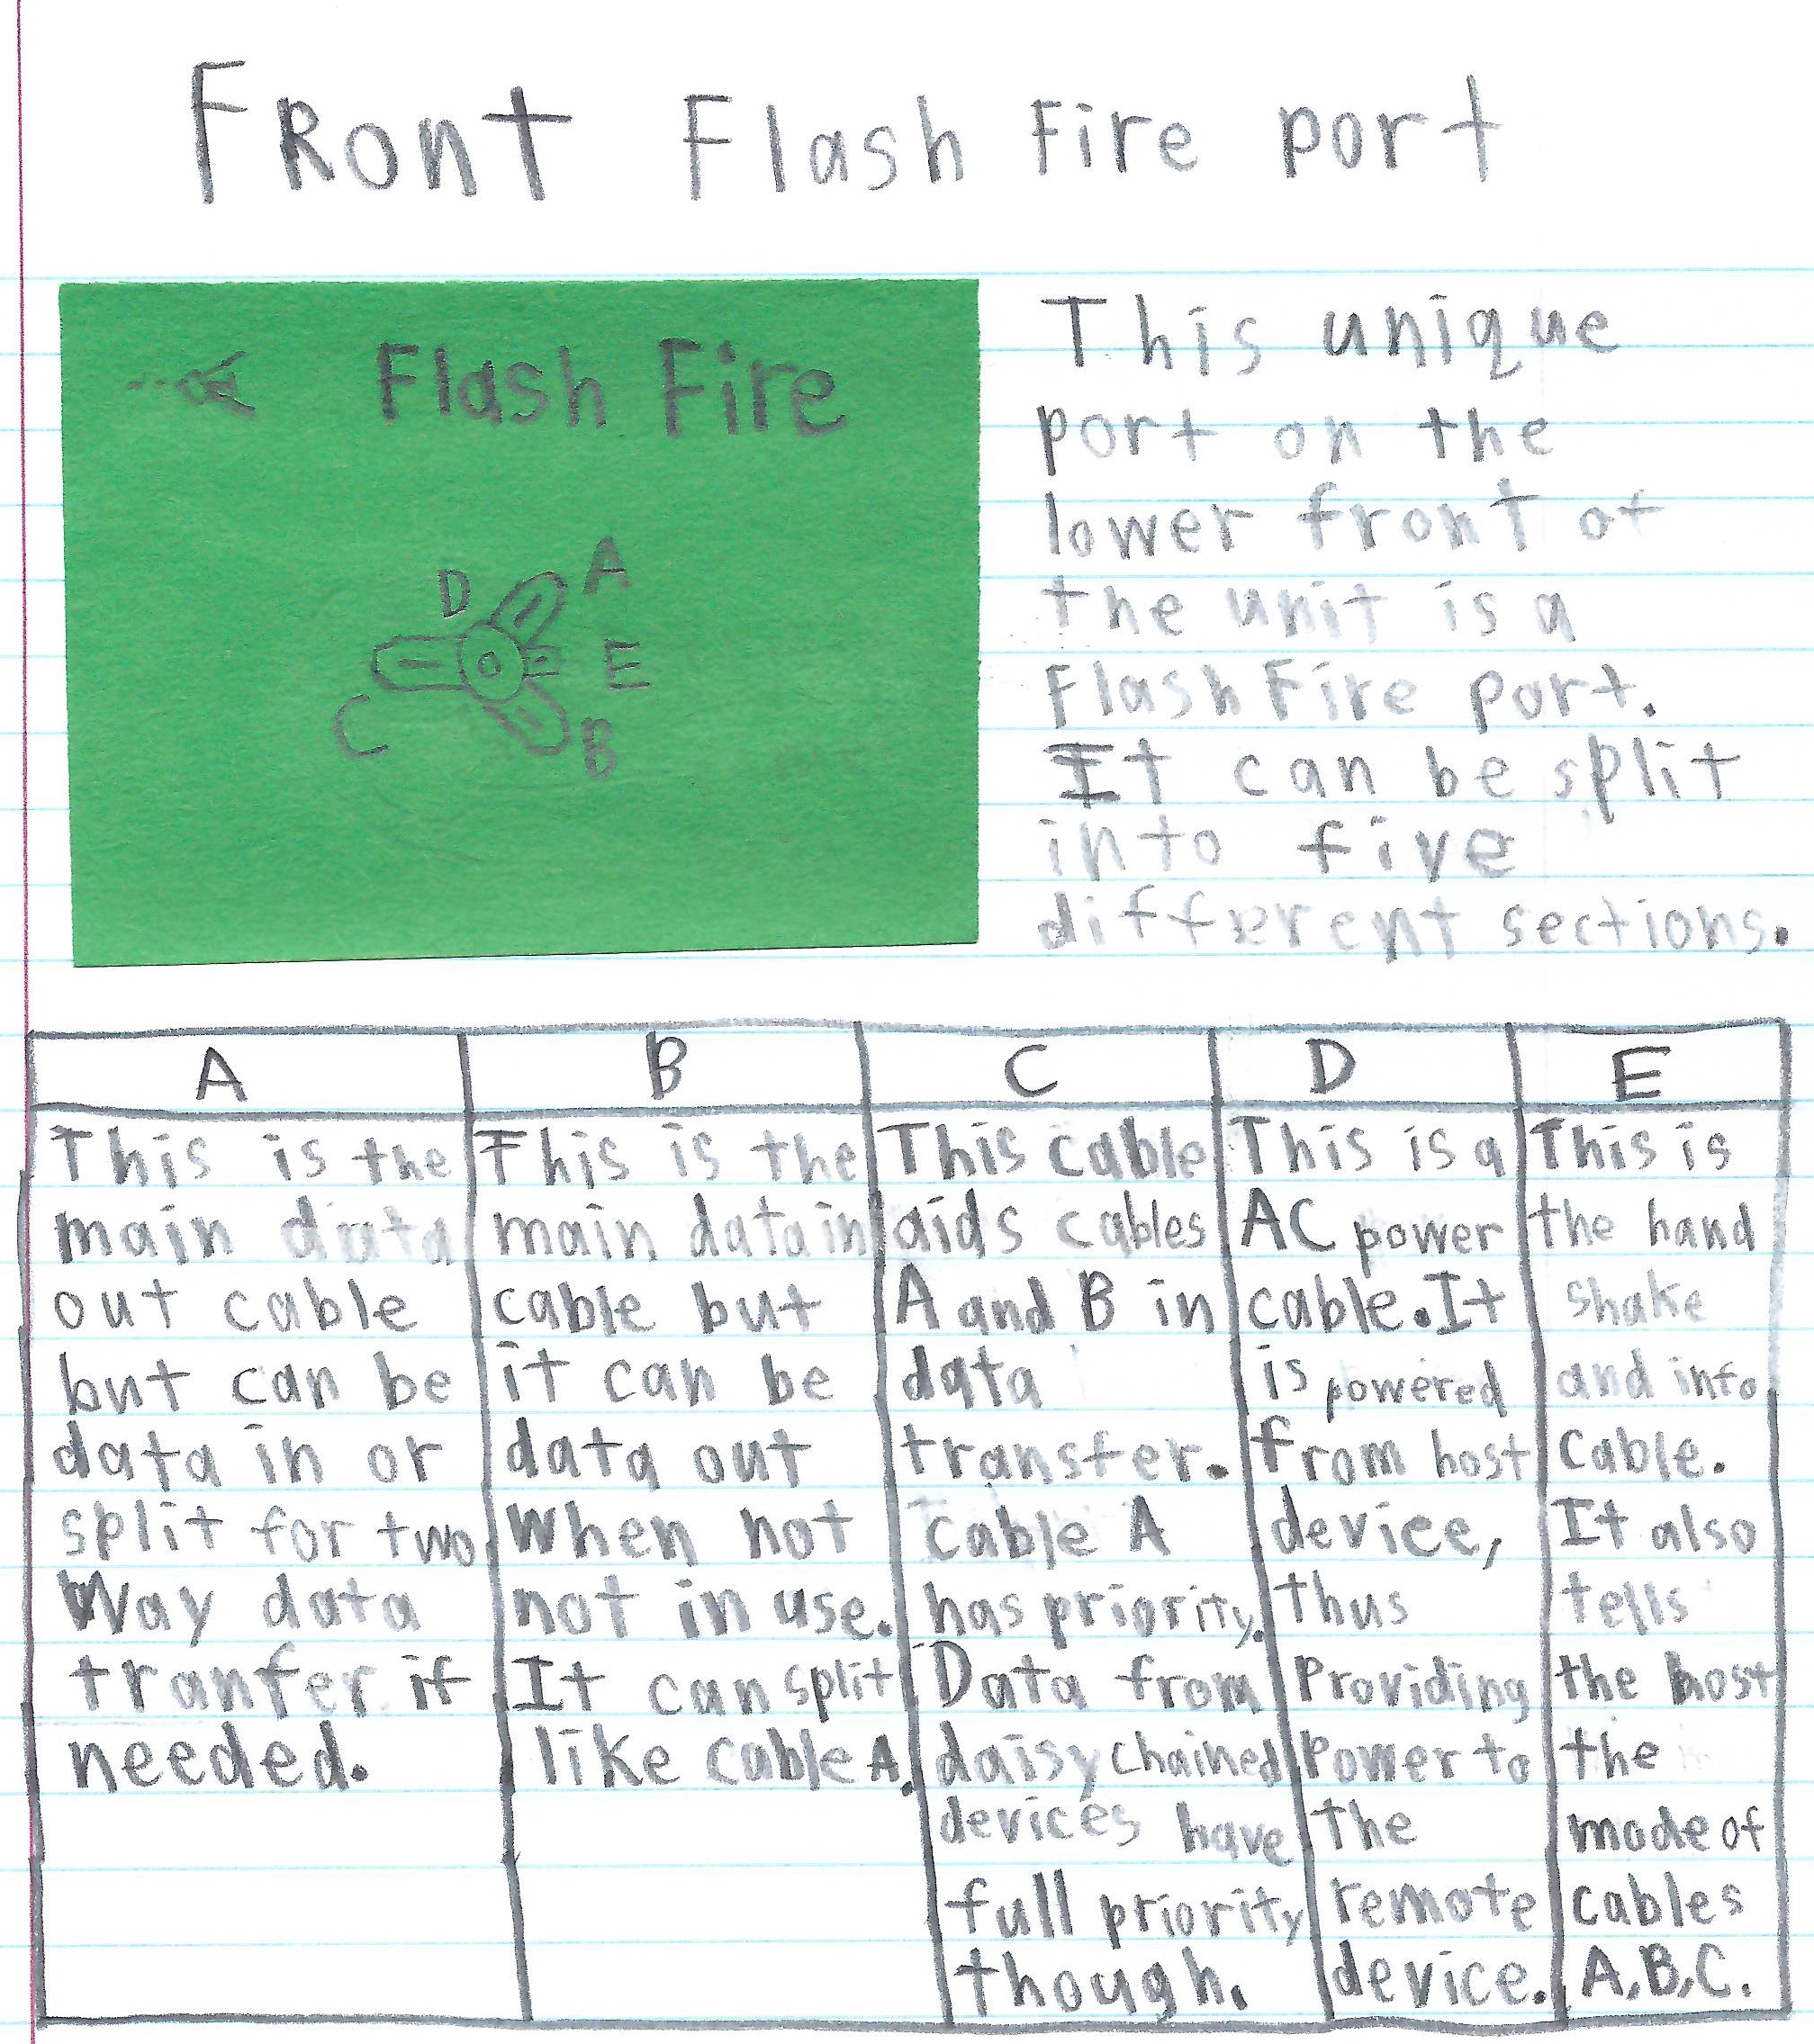 Front Flash Fire port
Flash Fire
A
D
E
C
B
This unique
port on the
lower front of
the unit is a
Flash Fire port.
It can be split
into five
different sections.
A
This is the
main data
out cable
but can be
data in or
split for two
way data
tranfer if
needed.
B
This is the
main data in
cable but
it can be
data out
when not
not in use.
It can split
like cable A.
C
This cable
aids cables
A and B in
data
transfer.
cable A
has priority.
Data from
daisy chained
devices have
full priority
though.
D
This is a
AC power
cable. It
is powered
from host
device,
thus
Providing
Power to
the
remote
device.
E
This is
the hand
shake
and info
cable.
It also
tells
the host
the
mode of
cables
A,B,C.